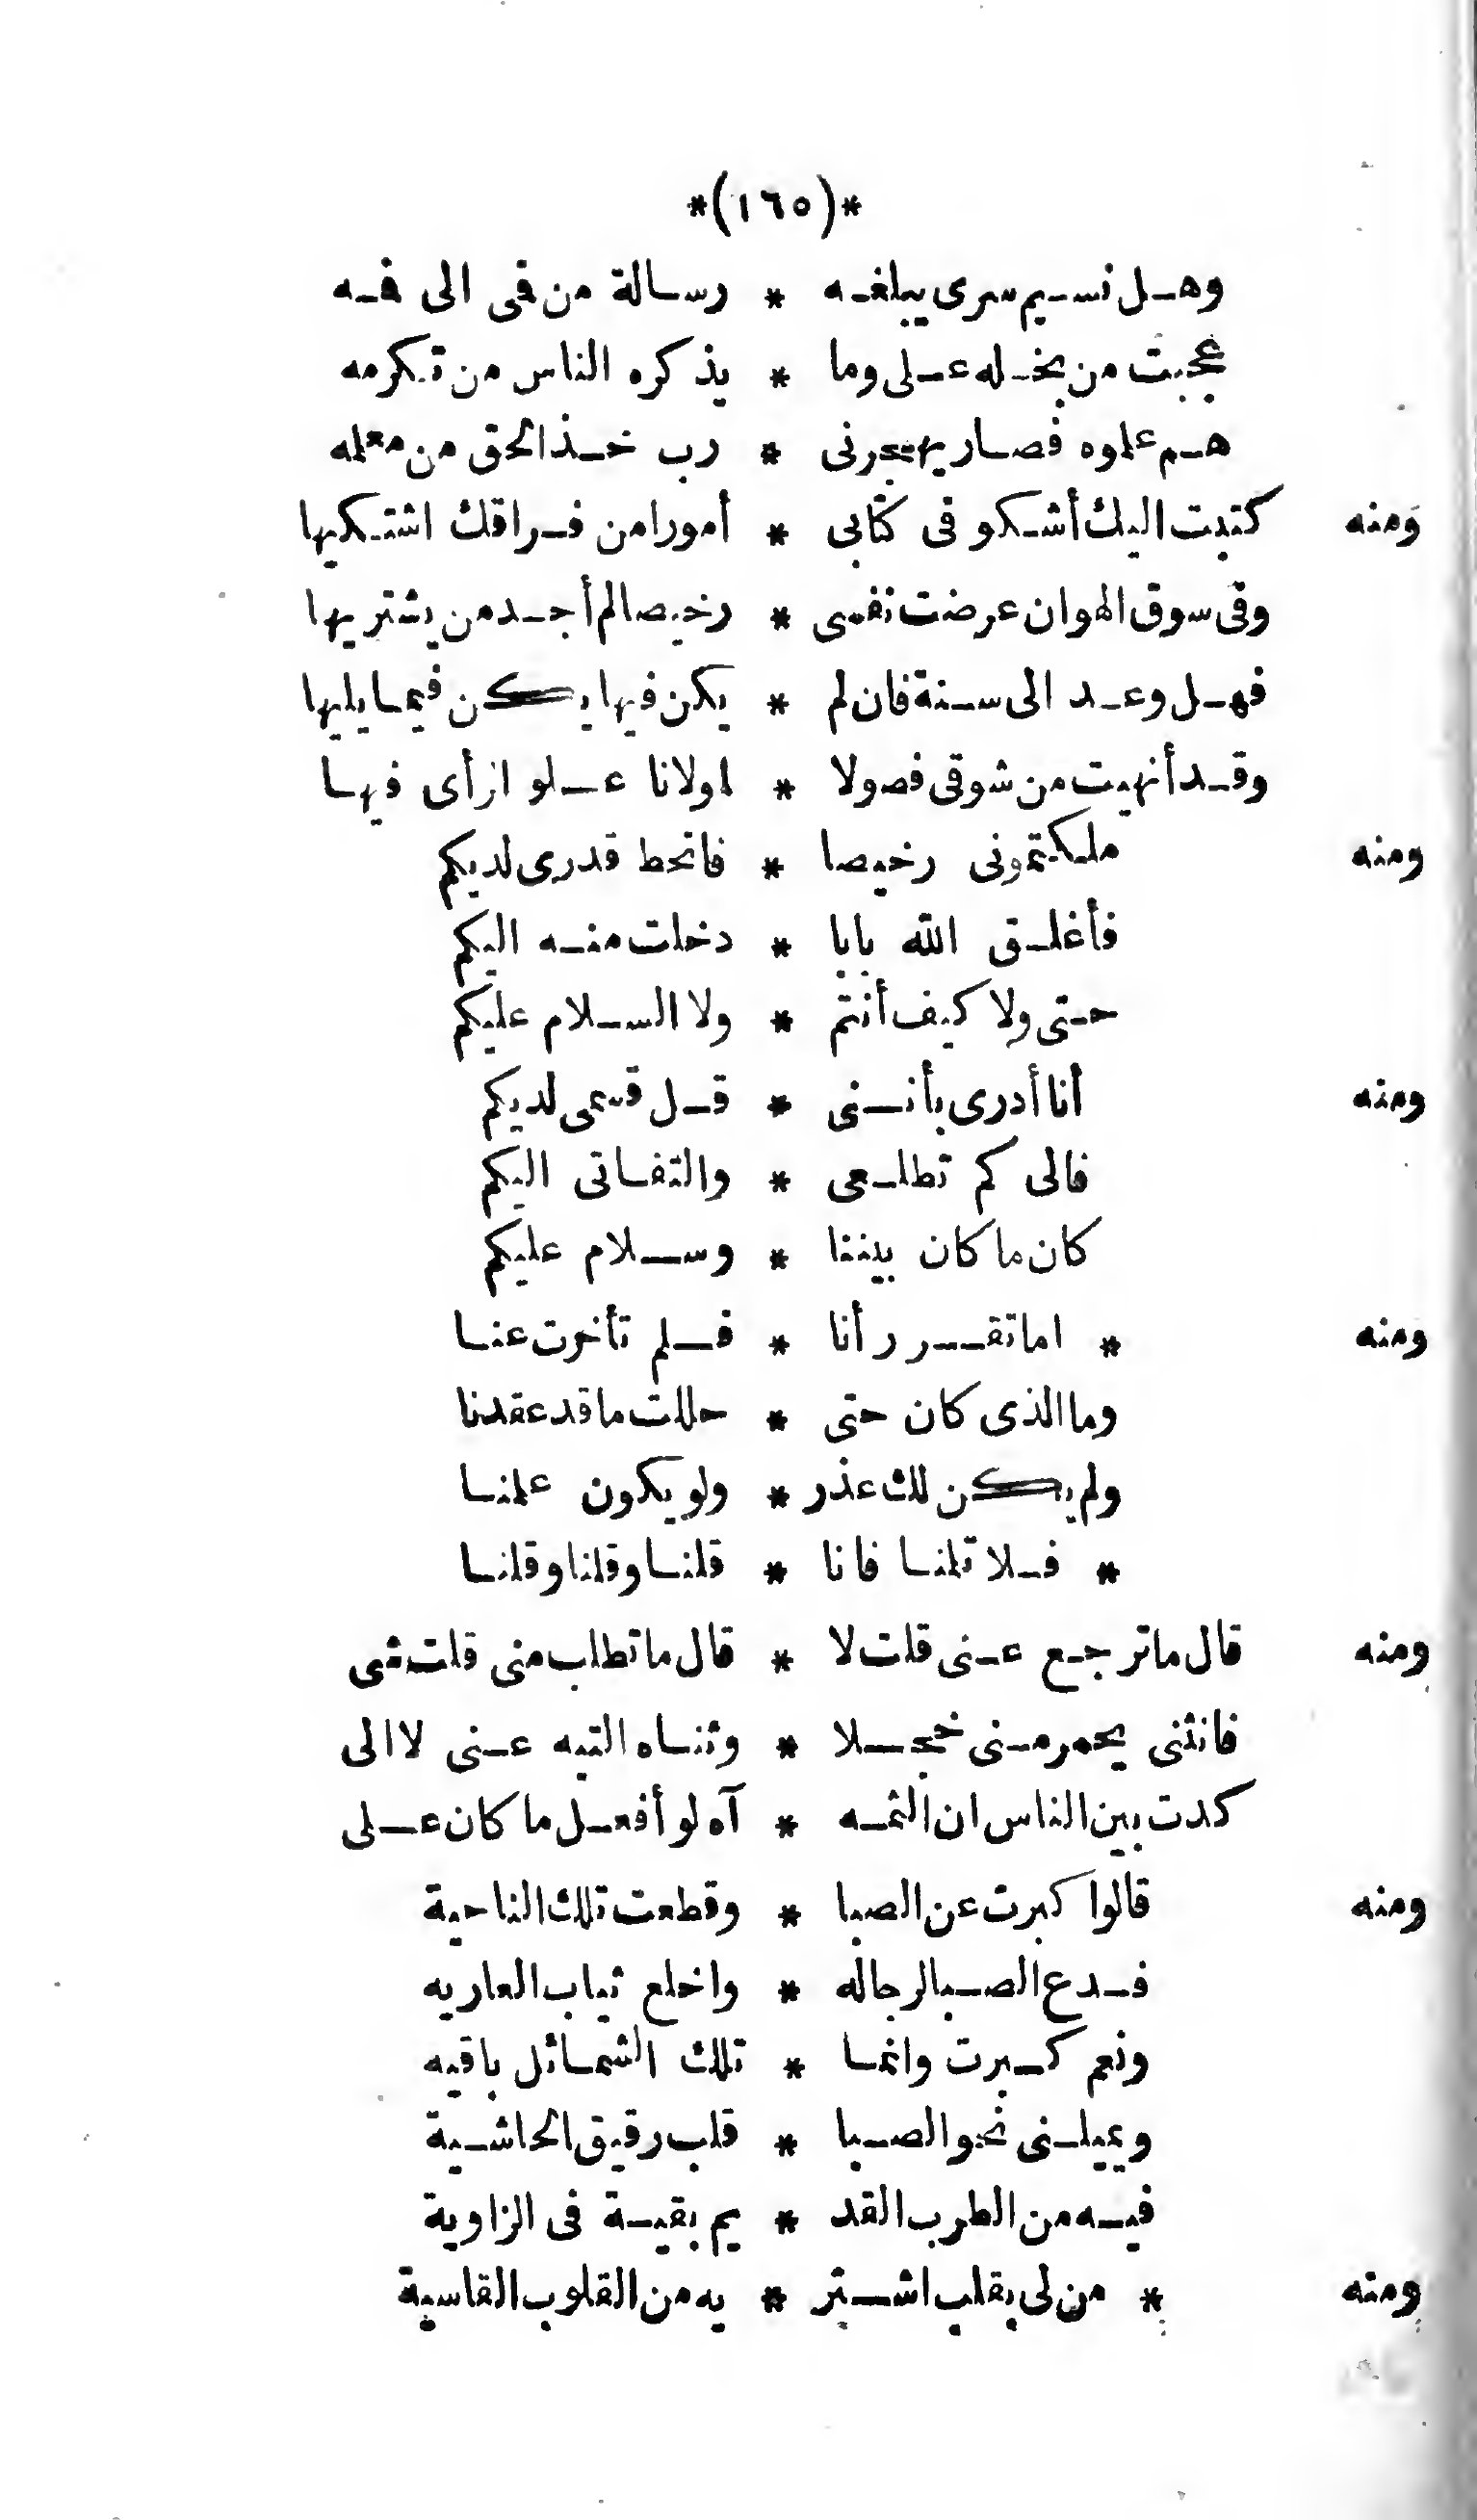 *(١٦٥)*
وهل نسيم سرى يبلغه * رسالة من فى الى فه
عجبت من بخله على وما * يذكره الناس من تكرمه
هم علموه فصار يهجرنى * رب خذ الحق من معلمه
ومنه كتبت اليك أشكو فى كتابى * أمورا من فراقك اشتكيها
وفى سوق الهوان عرضت نفسى * رخيصا لم أجد من يشتريها
فهل وعد الى سنة فان لم * يكن فيها يكن فيما يليها
وقد أنهيت من شوقى فصولا * لمولانا علو الرأى فيها
ومنه ملكتمونى رخيصا * فانحط قدرى لديكم
فأغلق الله بابا * دخلت منه اليكم
حتى ولا كيف أنتم * ولا السلام عليكم
ومنه أنا أدرى بأننى * قل قسمى لديكم
فالى كم تطلعى * والتفاتى اليكم
كان ما كان بيننا * وسلام عليكم
ومنه * اما تقرر أنا * فلم تأخرت عنا
وما الذى كان حتى * حللت ما قد عقدنا
ولم يكن لك عذر * ولو يكون علمنا
* فلا تلمنا فانا * قلنا وقلنا وقلنا
ومنه قال ما ترجع عنى قلت لا * قال ما تطلب منى قلت شى
فانثنى يحمر منى خجلا * وثناه التيه عنى لا الى
كدت بين الناس ان الثمه * آه لو أفعل ما كان على
ومنه قالوا كبرت عن الصبا * وقطعت تلك الناحية
فدع الصبا لرجاله * واخلع ثياب العاريه
ونعم كبرت وانما * تلك الشمائل باقيه
ويميلنى نحو الصبا * قلب رقيق الحاشية
فيه من الطرب القد * يم بقية فى الزاوية
ومنه * من لى بقلب اشتر * يه من القلوب القاسية